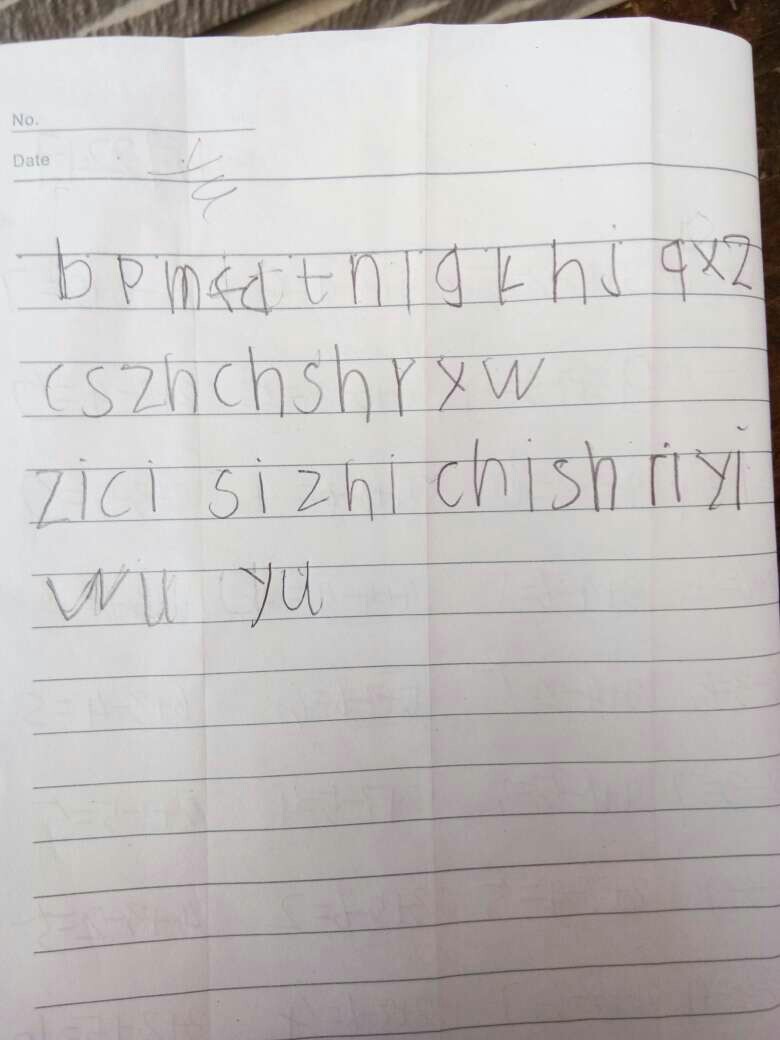 No.
Date
b p m f d t n l g k h j q x z
c s zh ch sh r y w
zi ci si zhi chi sh ri yi
wu yu